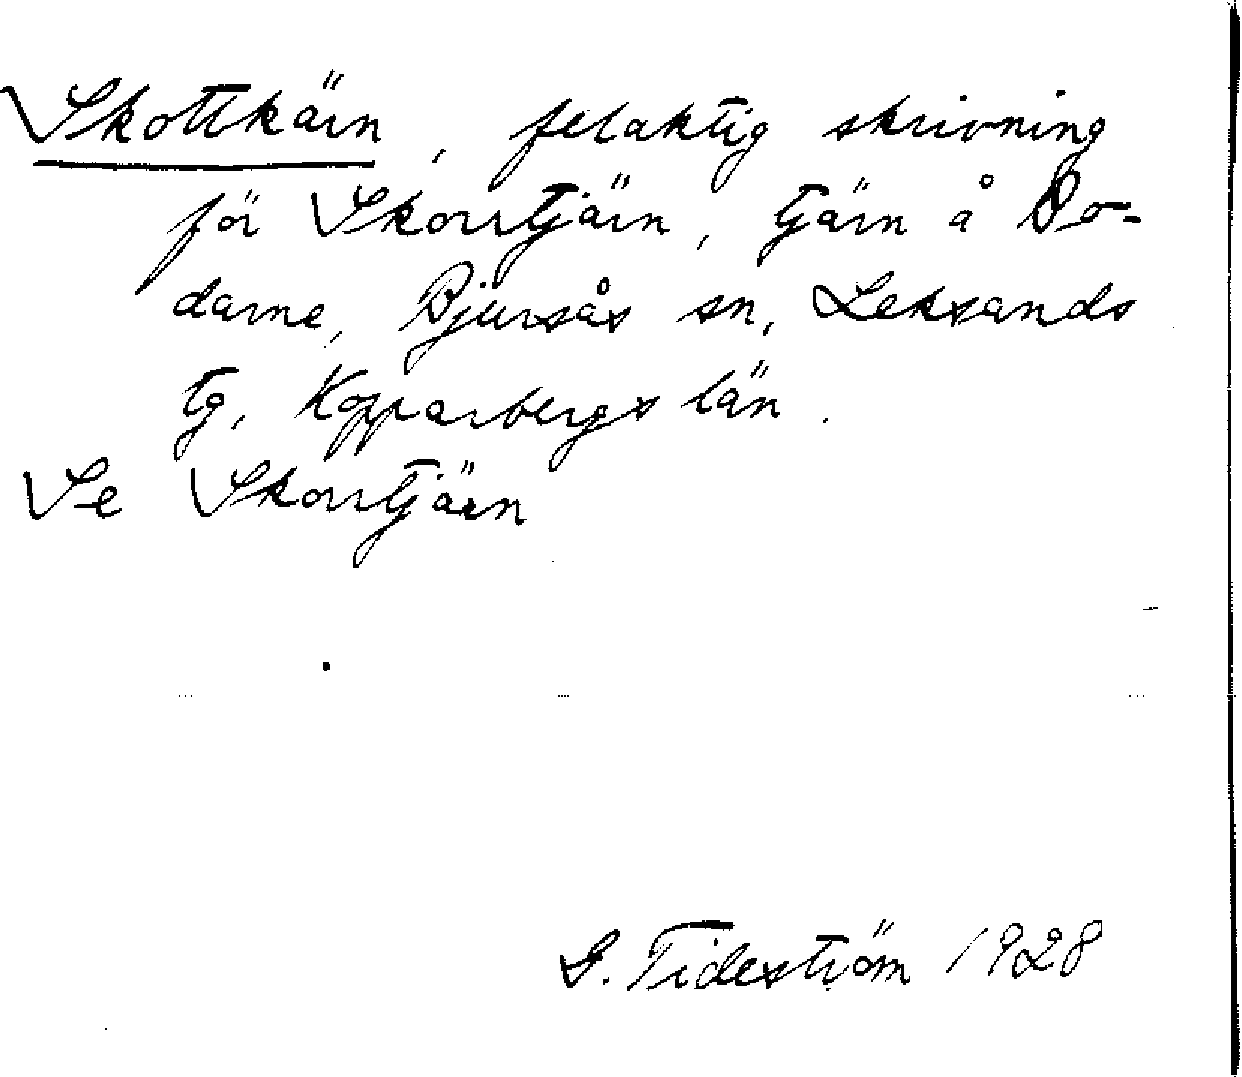 Skottkärn, felaktig skrivning
för Skorrtjärn, tjärn å Bo-
darne, Bjursås sn, Leksands
tg, Kopparbergs län.
Se Skorrtjärn
G. Tideström 1928